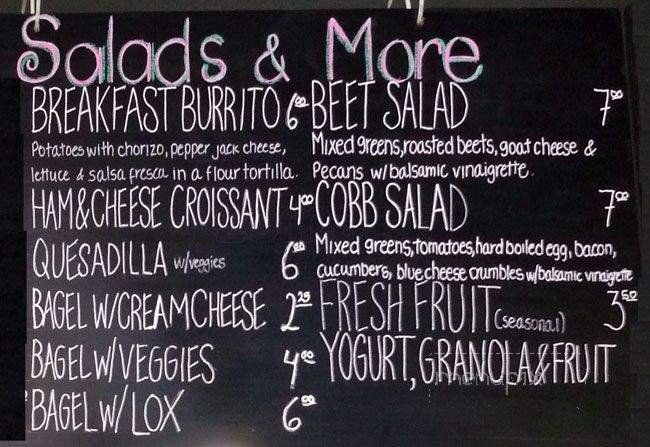 Salads & More
BREAKFAST BURRITO 6.00
Potatoes with chorizo, pepper jack cheese,
lettuce & salsa fresca in a flour tortilla.
HAM & CHEESE CROISSANT 4.00
QUESADILLA w/veggies 6.00
BAGEL W/CREAM CHEESE 2.25
BAGEL W/VEGGIES 4.00
BAGEL W/ LOX 6.00
BEET SALAD 7.00
Mixed greens, roasted beets, goat cheese &
Pecans w/balsamic vinaigrette.
COBB SALAD 7.00
Mixed greens, tomatoes, hard boiled egg, bacon,
cucumbers, blue cheese crumbles w/balsamic vinaigrette
FRESH FRUIT (seasonal) 3.50
YOGURT, GRANOLA & FRUIT